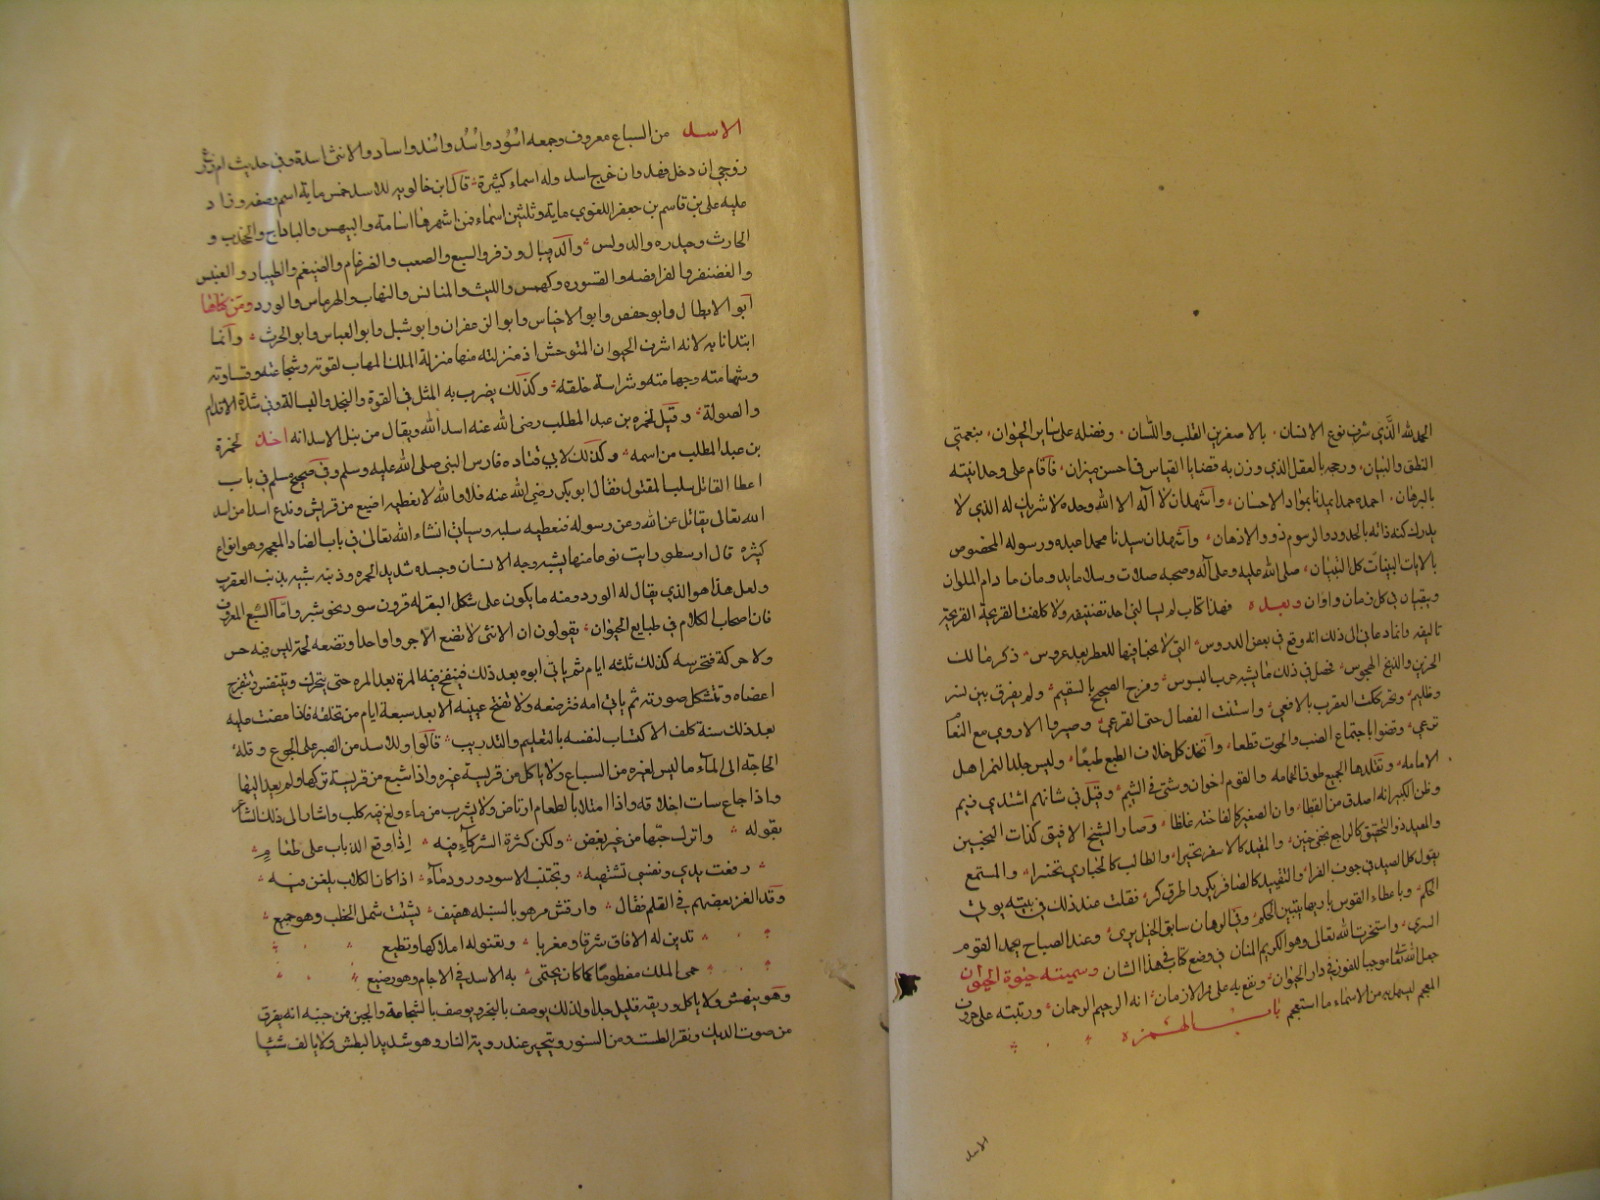 الحمد لله الذي شرف نوع الانسان بالاصغرين القلب واللسان وفضله على سائر الحيوان بنعمتي
النطق والبيان ورجحه بالعقل الذي وزن به قضايا القياس في احسن ميزان فاقام على وحدانيته
بالبرهان احمده حمدا يمدنا بمواد الاحسان واشهد ان لا اله الا الله وحده لا شريك له الذي لا
يدرك كنه ذاته بالحدود والرسوم ذوو الاذهان واشهد ان سيدنا محمدا عبده ورسوله المخصوص
بالايات البينات كل التبيان صلى الله عليه وعلى آله وصحبه صلاة وسلاما يدومان ما دام الملوان
ويبقيان في كل زمان واوان وبعد فهذا كتاب لم يسالني احد تصنيفه ولا كلفت القريحة
تاليفه وانما دعاني الى ذلك انه وقع في بعض الدروس التي لا مخبا فيها لعطر بعد عروس ذكر مالك
الحزين والذيخ المنحوس فحصل في ذلك ما يشبه حرب البسوس ومزج الصحيح بالسقيم ولم يفرق بين نسر
وظليم وتحككت العقرب بالافعى واستنت الفصال حتى القرعى وصيروا الاروى مع النعام
ترعى وقضوا باجتماع الضب والحوت قطعا واتخذ كل خلاق الضبع طبعا ولبس جلد النمر اهل
الامامه وتقلدها الجميع طوق الحمامه والقوم اخوان وشتى في الشيم وقيل في شانهم اشتدي زيم
وظن الكبير انه اصدق من القطا وان الصغير كالفاخته غلطا وصار الشيخ الافيق كذات النحيين
والمعيد ذو التحقيق كالراجع بخفي حنين والمفيد كالاشقر تحيرا والطالب كالحبارى تحسرا والمستمع
يقول كل الصيد في جوف الفرا والنقيب كالصافر يكرر اطرق كرا فقلت عند ذلك في بيته يوتى
الحكم وباعطاء القوس باريها يتبين الحكم وفي الرهان سابق الخيل يرى وعند الصباح يحمد القوم
السرى واستخرت الله تعالى وهو الكريم المنان في وضع كتاب في هذا الشان وسميته حيوة الحيوان
جعله الله تعالى موجبا للفوز في دار الجنان ونفع به على ممر الازمان انه الرحيم الرحمان ورتبته على حروف
المعجم ليسهل به من الاسماء ما استعجم باب الهمزه
الاسد
الاسد من السباع معروف وجمعه اسود واسد واسد واساد والانثى اسدة وفي حديث ام زرع
زوجي ان دخل فهد وان خرج اسد وله اسماء كثيرة قال ابن خالويه للاسد خمس ماية اسم وصفه وزاد
عليه علي بن قاسم بن جعفر اللغوي ماية وثلثين اسماء فمن اشهرها اسامة والبيهس والناج والجخدب و
الحارث وحيدره والدولس والريبال وزفر والسبع والصعب والضرغام والضيغم والطيثار والعنبس
والغضنفر والفرافصه والقسوره وكهمس والليث والمتانس والنهاب والهرماس والورد ومن كناها
ابو الابطال وابو حفص وابو الاخياس وابو الزعفران وابو شبل وابو العباس وابو الحرث وانما
ابتدانا به لانه اشرف الحيوان المتوحش اذ منزلته منها منزلة الملك المهاب لقوته وشجاعته وقساوته
وشهامته وجهامته وشراسة خلقه وكذلك يضرب به المثل في القوة والنجد والبسالة وفي شدة الاقدام
والصولة وقيل لحمزه بن عبد المطلب رضي الله عنه اسد الله ويقال من نبل الاسد انه اخذ لحمزة
بن عبد المطلب من اسمه وكذلك لابي قتاده فارس النبي صلى الله عليه وسلم وفي صحيح مسلم في باب
اعطا القاتل سلب المقتول فقال ابو بكر رضي الله عنه فلا والله لا نعطيه اضيبع من قريش وندع اسدا من اسد
الله تعالى يقاتل عن الله وعن رسوله فنعطيه سلبه وسياتي انشاء الله تعالى في باب الضاد المعجم وهو انواع
كثيره قال ارسطو رايت نوعا منها يشبه وجه الانسان وجسده شديد الحمره وذنبه شبيه بذنب العقرب
ولعل هذا هو الذي يقال له الورد ومنه ما يكون على شكل البقر له قرون سود نحو شبر واما السبع المعروف
فان اصحاب الكلام في طبايع الحيوان يقولون ان الانثى لا تضع الا جروا واحدا وتضعه لحمة ليس فيه حس
ولا حركة فتحرسه كذلك ثلثه ايام ثم ياتي ابوه بعد ذلك فينفخ فيه المرة بعد المره حتى يتحرك ويتنفس وتنفرج
اعضاه وتتشكل صورته ثم ياتي امه فترضعه ولا تفتح عينيه الا بعد سبعة ايام من تخلقه فاذا مضت عليه
بعد ذلك ستة كلف الاكتساب لنفسه بالتعليم والتدريب قالوا وللاسد من الصبر على الجوع وقلة
الحاجة الى الماء ما ليس لغيره من السباع ولا ياكل من فريسة غيره واذا شبع من فريسة تركها ولم يعد اليها
واذا جاع سات اخلاقه واذا امتلا بالطعام ارتاض ولا يشرب من ماء ولغ فيه كلب واشار الى ذلك الشاعر
بقوله واترك حبها من غير بغض ولكن كثرة الشركاء فيه اذا وقع الذباب على طعام
رفعت يدي ونفسي تشتهيه وتجتنب الاسود ورود ماء اذا كان الكلاب يلغن فيه
وقد الغز بعضهم في القلم فقال وارقش مرهو بالسبله مهفهف يشتت شمل الخطب وهو جميع
تدين له الافاق شرقا ومغربا وتعنو له املاكها وتطيع
حمى الملك مفطوما كما كان يحتمى به الاسد في الاجام وهو رضيع
وهو ينهش ولا ياكل وريقه قليل جدا ولذلك يوصف بالبخر ويوصف بالشجاعة والجبن فمن جبنه انه يفرق
من صوت الديك ونقر الطست ومن السنور ويتحير عند رويته النار وهو شديد البطش ولا يالف شيئا